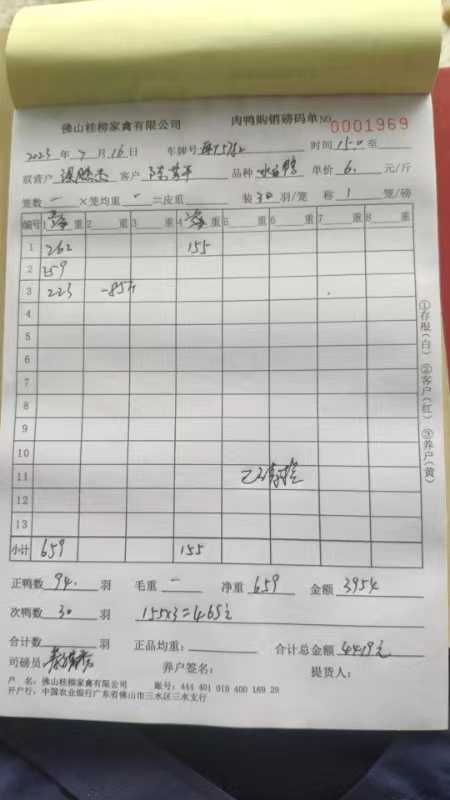 佛山桂柳家禽有限公司 肉鸭购销磅码单 NO 0001969
2023年7月16日 车牌号 时间 15:0 至
联营户 客户 品种 单价 6. 元/斤
笼数 — ×笼均重 =皮重 装 30 羽/笼 称 1 笼/磅
编号 1 重 2 重 3 重 4 重 5 重 6 重 7 重 8 重
1 262 155
2 259
3 223 -85斤
4
5
6
7
8
9
10
11
12
13
小计 659 155
正鸭数 94. 羽 毛重 — 净重 659 金额 3954
次鸭数 30 羽 155×3=465元
合计数 羽 正品均重: 合计总金额 4419元
司磅员 养户签名: 提货人:
户 名: 佛山桂柳家禽有限公司 账号: 444 401 010 400 169 29
开户行: 中国农业银行广东省佛山市三水区三水支行
①存根(白) ②客户(红) ③养户(黄)